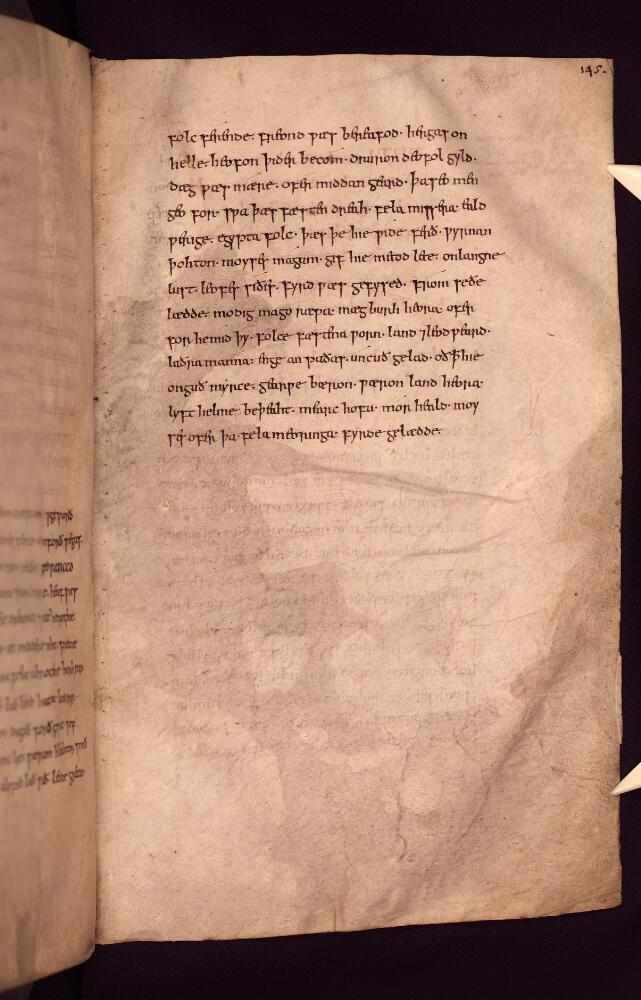 145.
folc ferende. freond wæs bereafod. hergas on
helle. heofon þider becom. druron deofol gyld.
dæg wæs mære. ofer middan geard. þa seo men
geo for. swa þæs fæsten dreah. fela missera. eald
werige. egypta folc. þæs þe hie wide ferð. wyrnan
þohton. moyses magum. gif hie metod lete. onlangne
lust. leofes siðes. fyrd wæs gefysed. from seðe
lædde. modig mago ræswa. mægburh heora. ofer
for hemid þy. folce fæstena worn. land ⁊leodweard.
laðra manna. enge an paðas. uncuð gelad. oðꝥhie
onguð myrce. gearwe bæron. wæron land heora.
lyft helme beþeaht. mearc hofu. mor heald. moy
ses ofer þa. fela meoringa. fyrde gelædde.